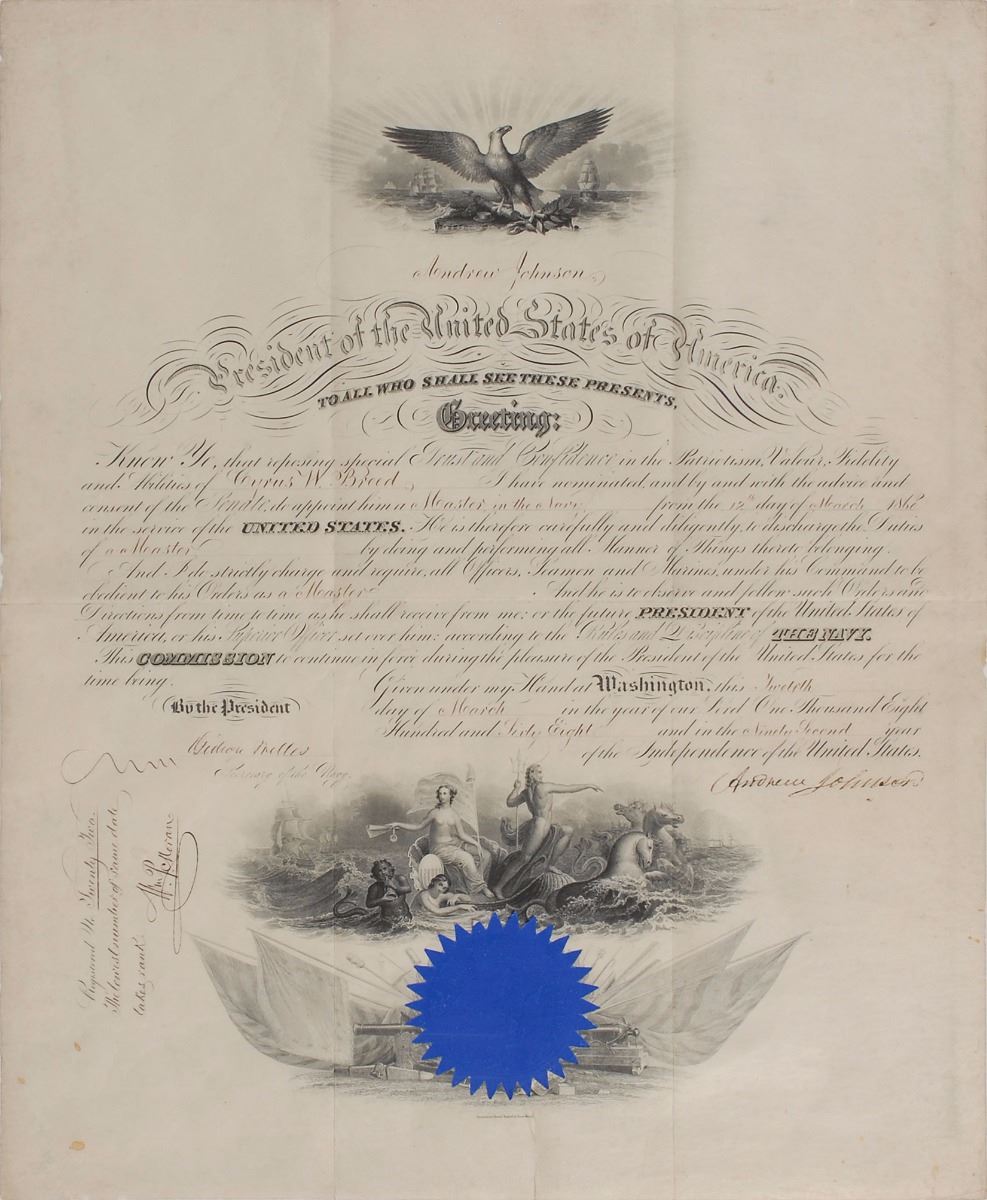 Andrew Johnson
President of the United States of America.
TO ALL WHO SHALL SEE THESE PRESENTS,
Greeting:
Know Ye, that reposing special Trust and Confidence in the Patriotism, Valour, Fidelity
and Abilities of Cyrus W. Breed I have nominated, and by and with the advice and
consent of the Senate, do appoint him a Master in the Navy from the 12th day of March 1868
in the service of the UNITED STATES. He is therefore carefully and diligently to discharge the Duties
of a Master by doing and performing all Manner of Things thereto belonging.
And I do strictly charge and require, all Officers, Seamen and Marines, under his Command to be
obedient to his Orders as a Master And he is to observe and follow such Orders and
Directions from time to time as he shall receive from me; or the future PRESIDENT of the United States of
America, or his Superior Officer set over him; according to the Rules and Discipline of THE NAVY.
This COMMISSION to continue in force during the pleasure of the President of the United States for the
time being.
Given under my Hand at Washington, this Twelfth
By the President
day of March in the year of our Lord One Thousand Eight
Hundred and Sixty Eight and in the Ninety Second year
of the Independence of the United States.
Gideon Welles
Secretary of the Navy.
Andrew Johnson
Registered No. Twenty Two.
The lowest number of same date
takes rank.
Wm. P. Moran